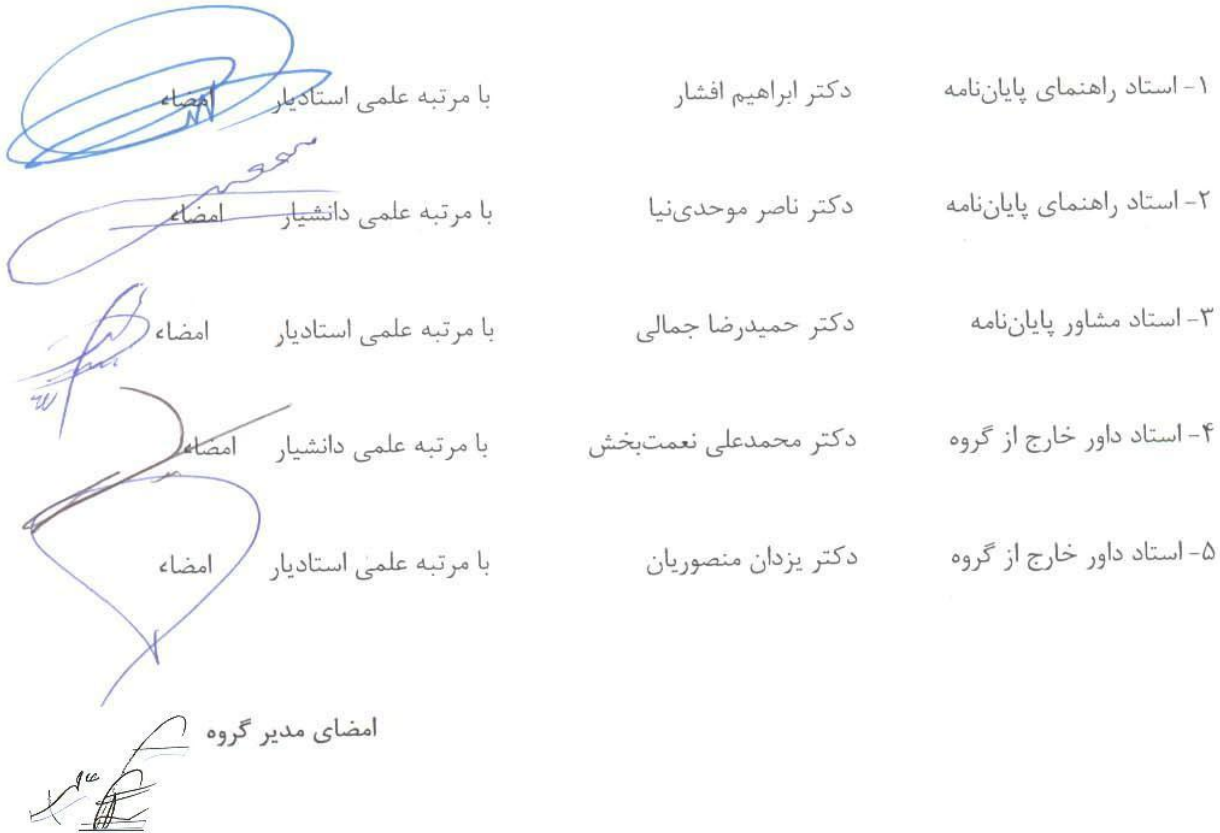 ۱- استاد راهنمای پایان‌نامه دکتر ابراهیم افشار با مرتبه علمی استادیار امضاء
۲- استاد راهنمای پایان‌نامه دکتر ناصر موحدی‌نیا با مرتبه علمی دانشیار امضاء
۳- استاد مشاور پایان‌نامه دکتر حمیدرضا جمالی با مرتبه علمی استادیار امضاء
۴- استاد داور خارج از گروه دکتر محمدعلی نعمت‌بخش با مرتبه علمی دانشیار امضاء
۵- استاد داور خارج از گروه دکتر یزدان منصوریان با مرتبه علمی استادیار امضاء
امضای مدیر گروه